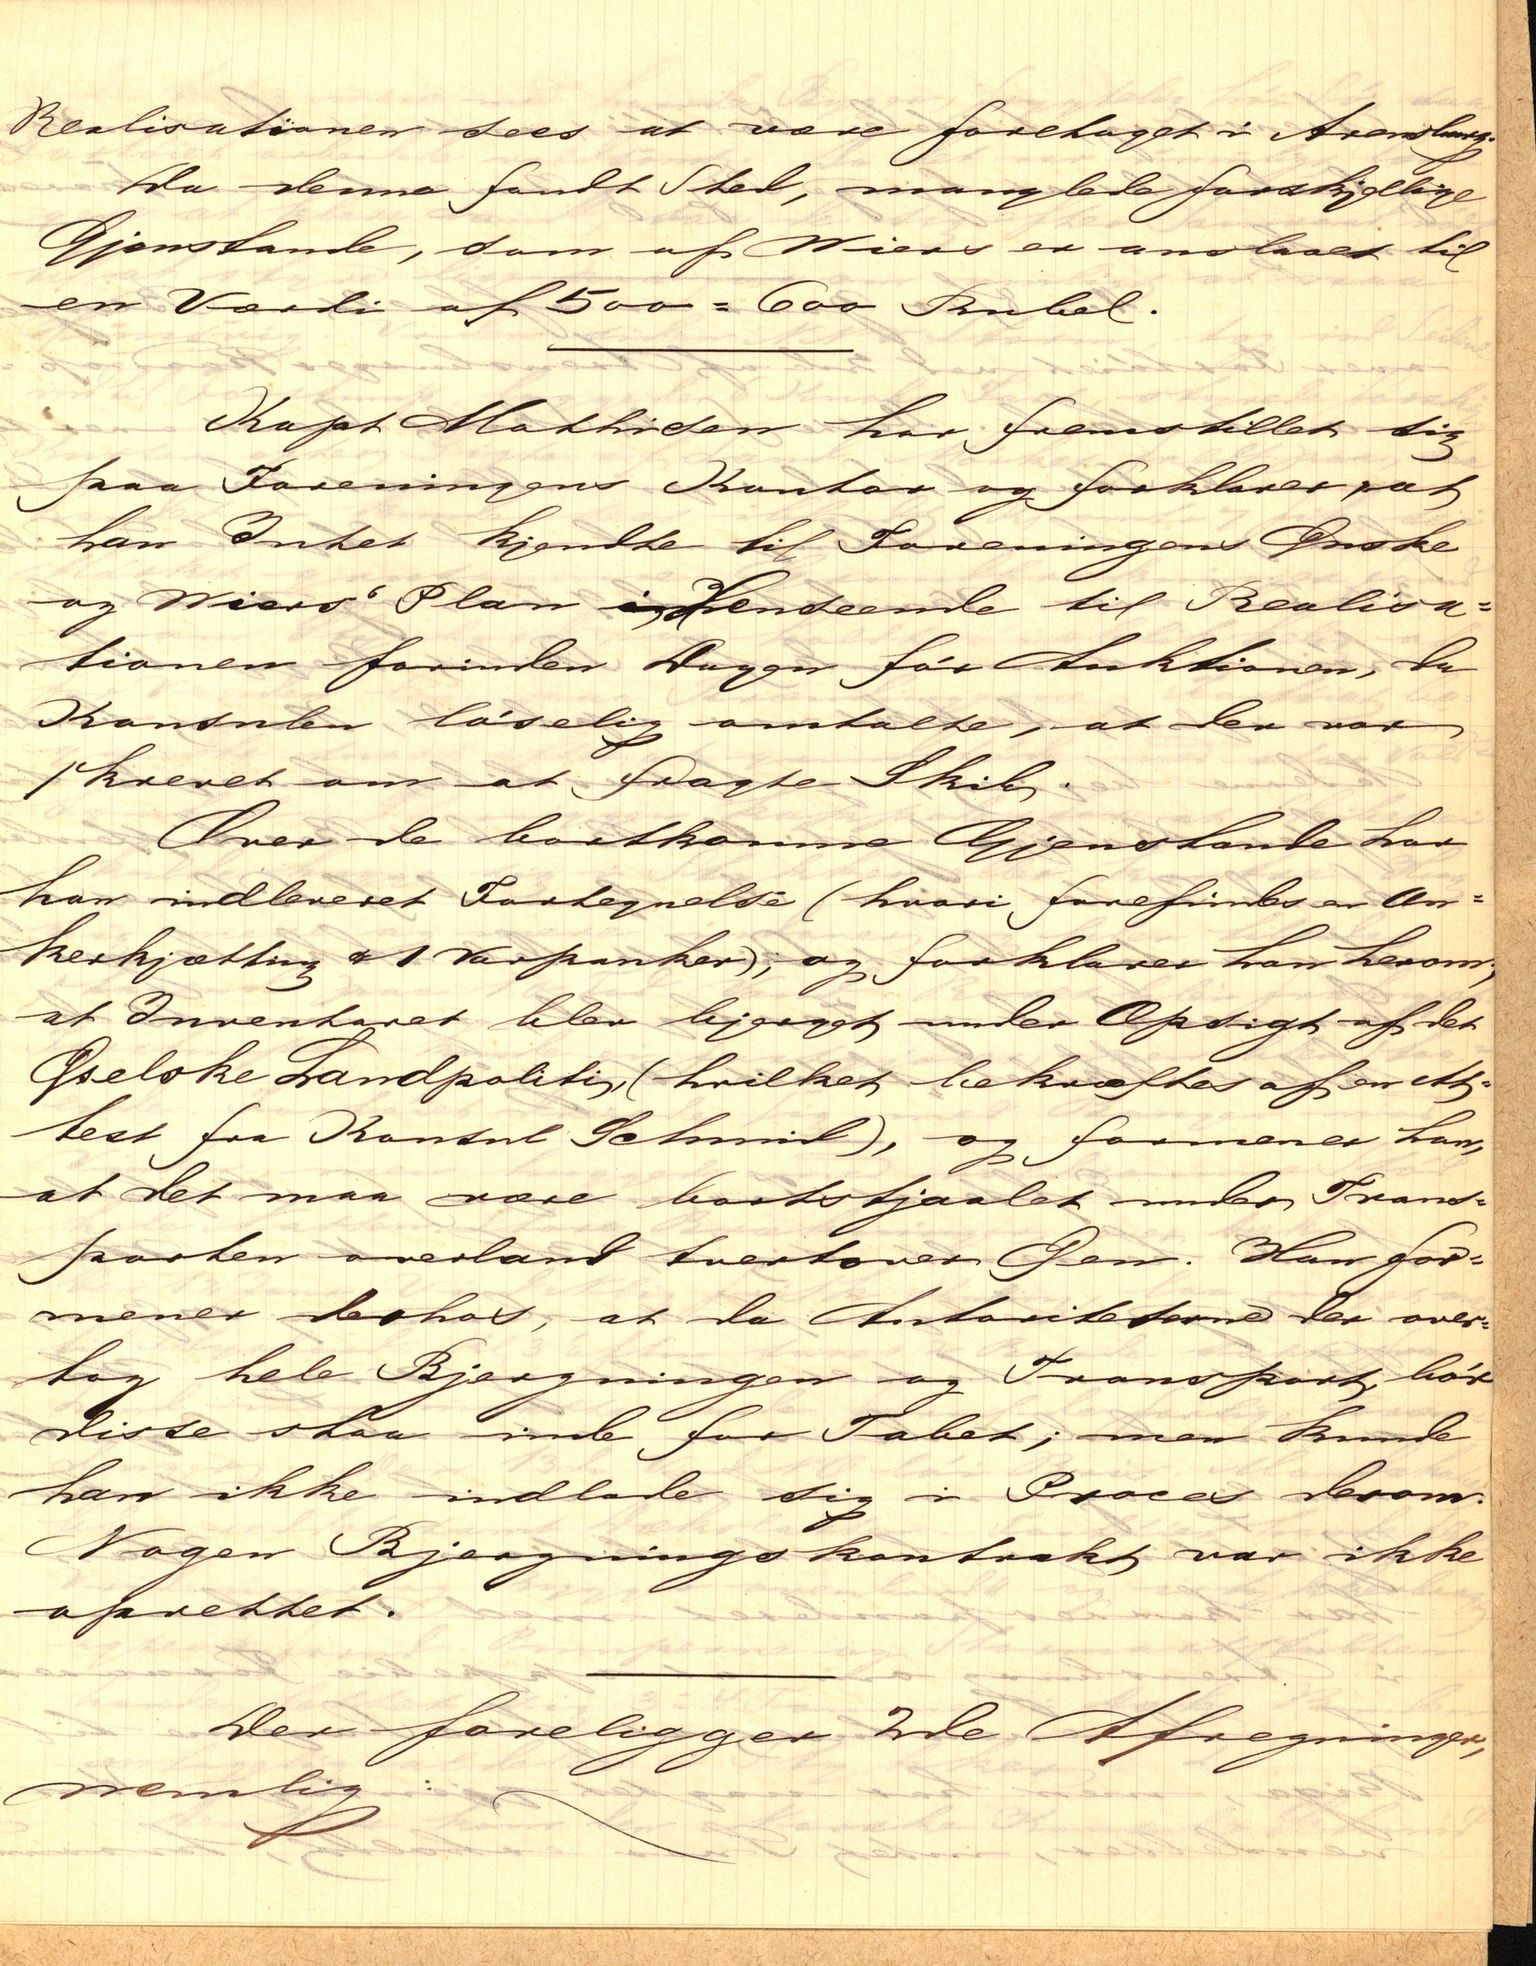 Realisationen sees at være foretaget i Arensburg.
Da denne fandt Sted, manglede forskjellige
Gjenstande, som af Wiers er anslaaet til
en Værdi af 500 = 600 Rubel.
Kapt Mathisen har fremstillet sig
paa Foreningens Kontor og forklarer, at
han Intet kjendte til Foreningens Ønske
og Wiers' Plan i Henseende til Realisa=
tionen forinden Dagen før Auktionen, da
Konsulen løselig omtalte, at der var
skrevet om at fragte Skib.
Over de bortkomne Gjenstande har
han indleveret Fortegnelse (hvori forefindes en An=
kerkjætting & 1 Varpanker); og forklarer han herom,
at Inventaret blev bjerget under Opsigt af det
Øselske Landpoliti, (hvilket bekræftes af en At=
test fra Konsul Schmid), og formener han,
at det maa være bortstjaalet under Trans=
porten overland tvertover Øen. Han for=
mener derhos, at da Autoriteterne der over=
tog hele Bjergningen og Transport, bør
disse staa inde for Tabet; men kunde
han ikke indlade sig i Proces derom.
Nogen Bjergningskontrakt var ikke
oprettet.
Der foreligger 2de Afregninger,
nemlig: